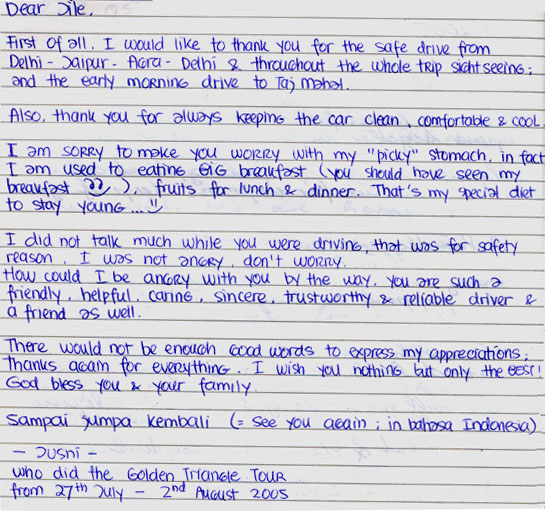 Dear Dile,
First of all, I would like to thank you for the safe drive from
Delhi - Jaipur - Agra - Delhi & throughout the whole trip sightseeing;
and the early morning drive to Taj Mahal.
Also, thank you for always keeping the car clean, comfortable & cool.
I am SORRY to make you WORRY with my "picky" stomach, in fact
I am used to eating BIG breakfast (you should have seen my
breakfast ??), fruits for lunch & dinner. That's my special diet
to stay young...
I did not talk much while you were driving, that was for safety
reason. I was not angry, don't worry.
How could I be angry with you by the way, you are such a
friendly, helpful, caring, sincere, trustworthy & reliable driver &
a friend as well.
There would not be enough good words to express my appreciations;
Thanks again for everything. I wish you nothing but only the BEST!
God bless you & your family.
Sampai jumpa kembali (= see you again; in bahasa Indonesia)
- Jusni -
who did the Golden Triangle Tour
from 27th July - 2nd August 2005